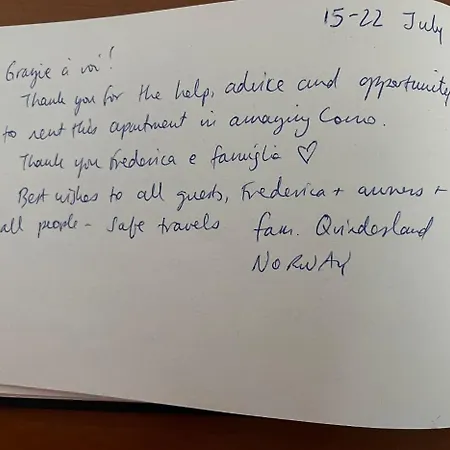 15-22 July
Grazie à voi!
Thank you for the help, advice and opportunity
to rent this apartment in amazing Como.
Thank you Frederica e famiglia ♡
Best wishes to all guests, Frederica + owners +
all people - safe travels
fam. Quindesland
NORWAY